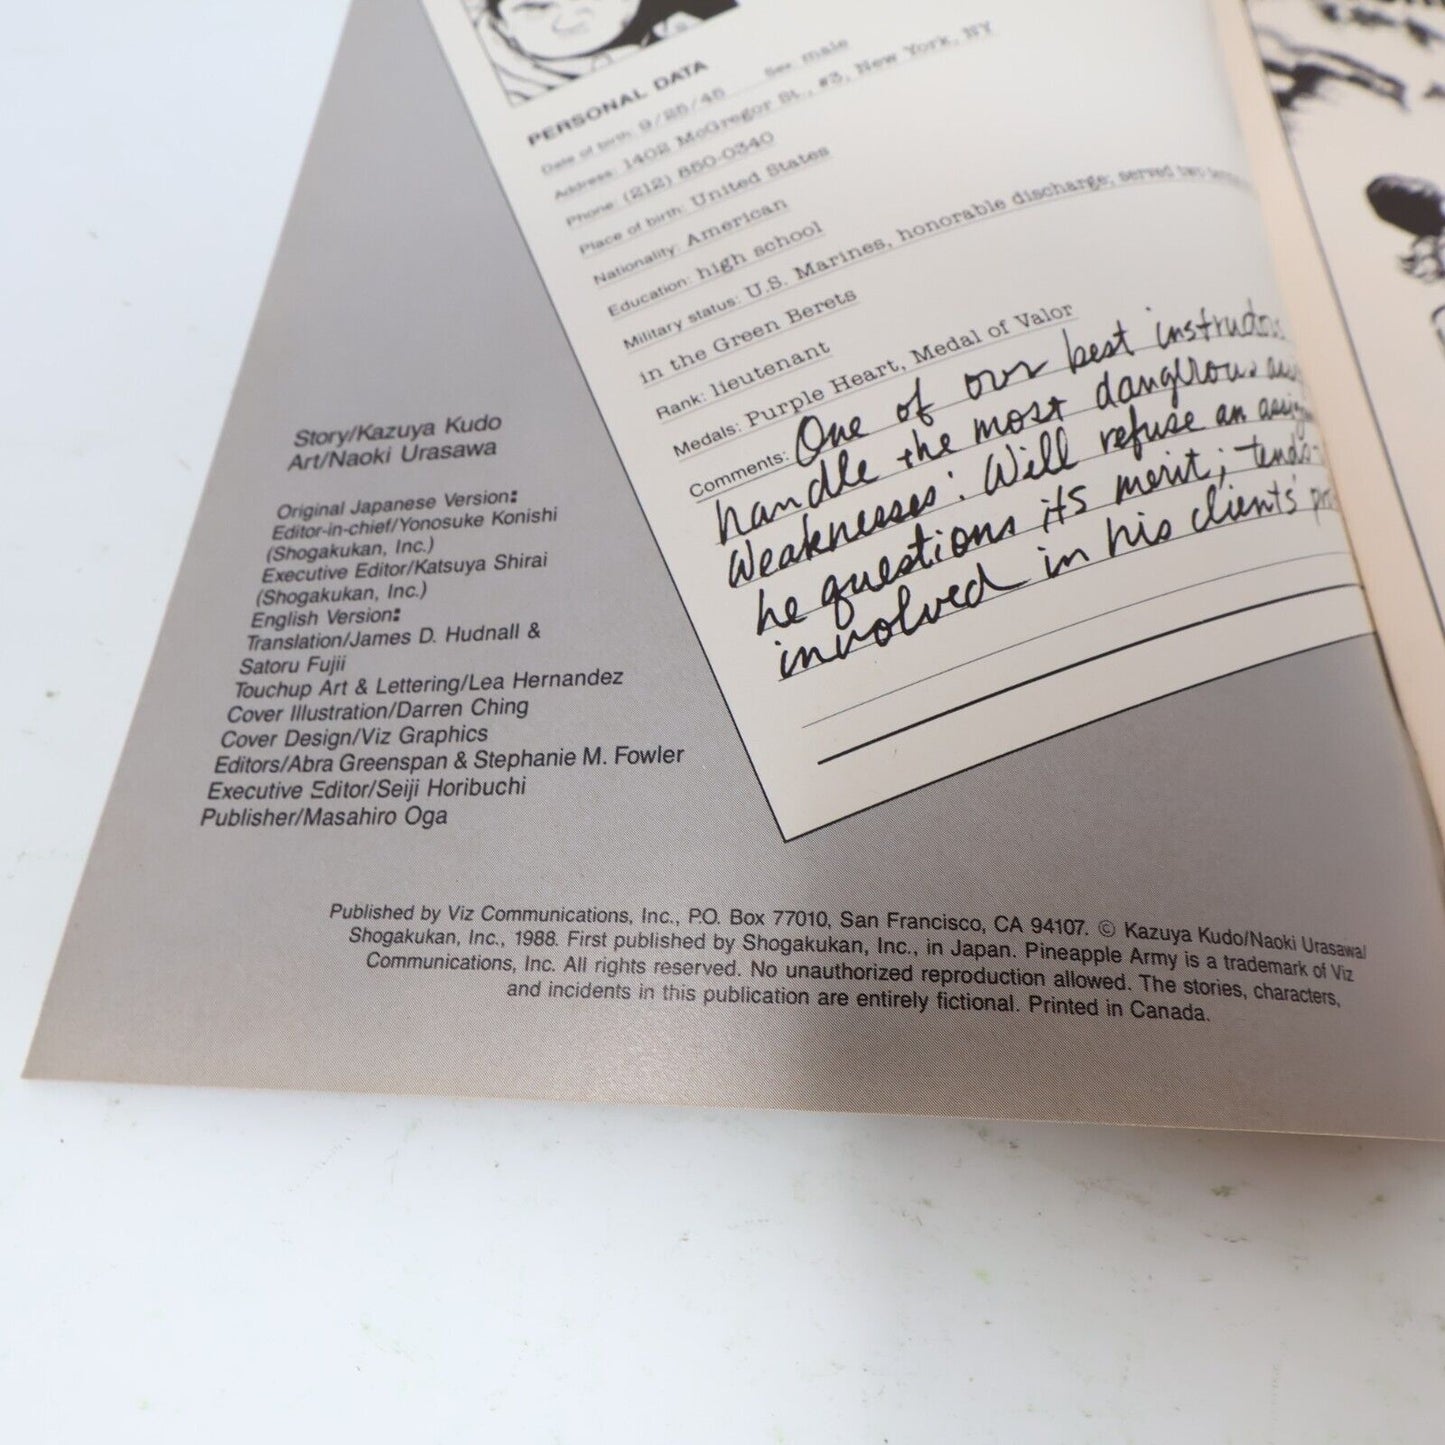 PERSONAL DATA
Date of birth: 9/25/45 Sex male
Address: 1402 McGregor St., #3, New York, NY
Phone: (212) 850-0340
Place of birth: United States
Nationality: American
Education: high school
Military status: U.S. Marines, honorable discharge; served two
in the Green Berets
Rank: lieutenant
Medals: Purple Heart, Medal of Valor
Comments: One of our best instructors
handle the most dangerous
Weaknesses: Will refuse an
he questions its merit; tends
involved in his clients'
Story/Kazuya Kudo
Art/Naoki Urasawa
Original Japanese Version:
Editor-in-chief/Yonosuke Konishi
(Shogakukan, Inc.)
Executive Editor/Katsuya Shirai
(Shogakukan, Inc.)
English Version:
Translation/James D. Hudnall &
Satoru Fujii
Touchup Art & Lettering/Lea Hernandez
Cover Illustration/Darren Ching
Cover Design/Viz Graphics
Editors/Abra Greenspan & Stephanie M. Fowler
Executive Editor/Seiji Horibuchi
Publisher/Masahiro Oga
Published by Viz Communications, Inc., P.O. Box 77010, San Francisco, CA 94107. © Kazuya Kudo/Naoki Urasawa/
Shogakukan, Inc., 1988. First published by Shogakukan, Inc., in Japan. Pineapple Army is a trademark of Viz
Communications, Inc. All rights reserved. No unauthorized reproduction allowed. The stories, characters,
and incidents in this publication are entirely fictional. Printed in Canada.